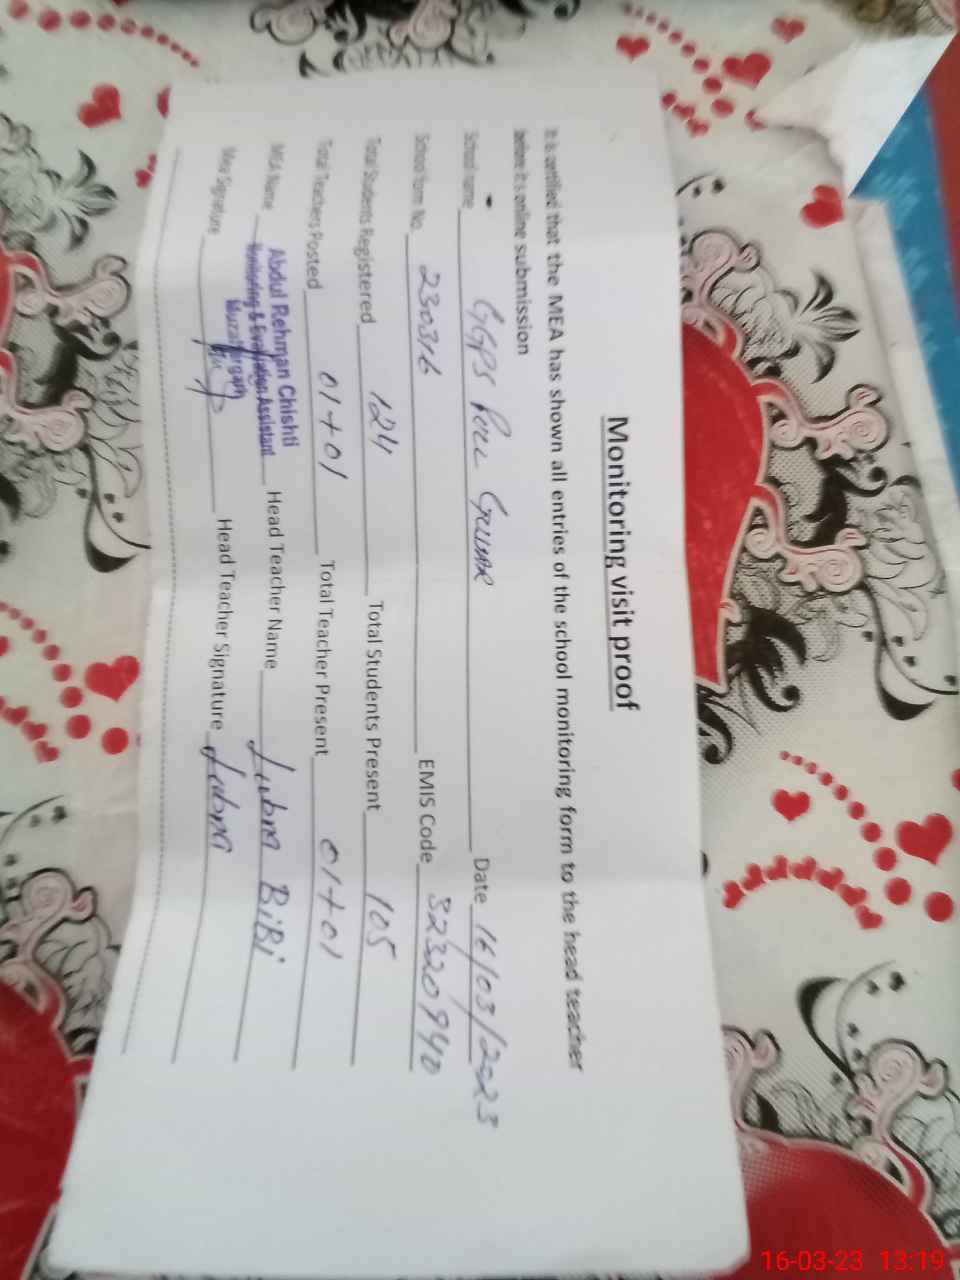 Monitoring visit proof
It is certified that the MEA has shown all entries of the school monitoring form to the head teacher
before it's online submission
School name GGPS Date 16/03/2023
School form No. 230316 EMIS Code
Total Students Registered 124 Total Students Present 105
Total Teachers Posted 01+01 Total Teacher Present 01+01
MEA Name Abdul Rehman Chishti Head Teacher Name Lubna BiBi
Monitoring & Evaluation Assistant
Muzaffargarh
Mea Signature Head Teacher Signature Lubna
16-03-23 13:19